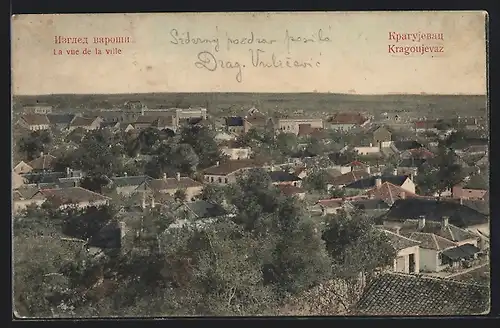 Изглед вароши
La vue de la ville
Крагујевац
Kragoujevaz
Srdačnij pozdrav posila
Drag.